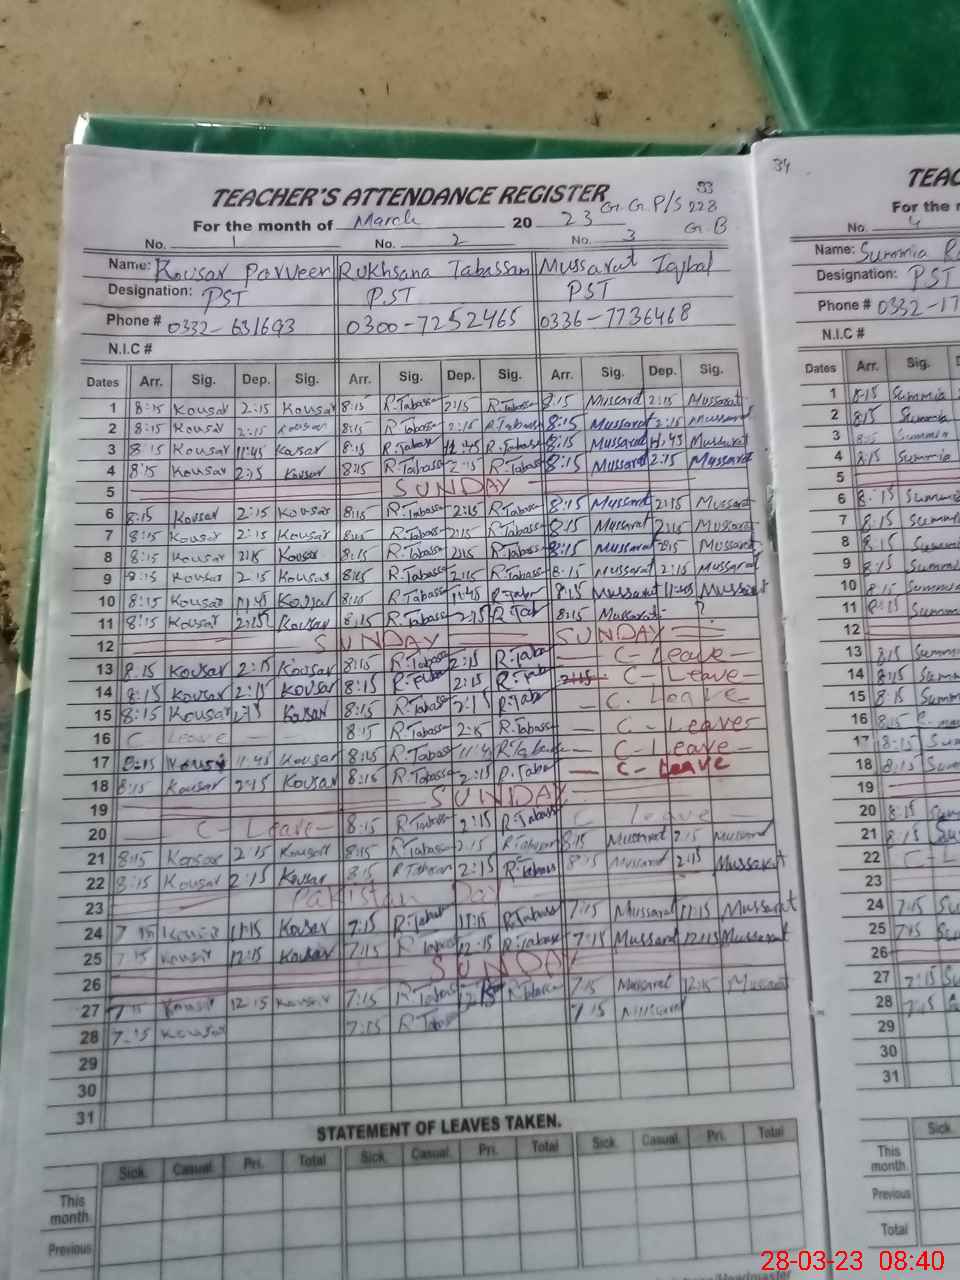 34
TEACHER'S ATTENDANCE REGISTER 33
TEAC
For the month of March 20 23 Gr. Gr. P/S 228
For the
No. 1 No. 2 No. 3 Gr. B
No. 4
Name: Kousar Parveen Rukhsana Tabassam Mussarat Iqbal
Name: Summia
Designation: PST PST PST
Designation: PST
Phone # 0332-631693 0300-7252465 0336-7736468
Phone # 0332-17
N.I.C #
N.I.C #
Dates Arr. Sig. Dep. Sig. Arr. Sig. Dep. Sig. Arr. Sig. Dep. Sig.
Dates Arr. Sig.
1 8:15 Kousar 2:15 Kousar 8:15 R.Tabass 2:15 R.Tabass 8:15 Mussarat 2:15 Mussarat
1 8:15 Summia
2 8:15 Kousar 2:15 Kousar 8:15 R.Tabass 2:15 R.Tabass 8:15 Mussarat 2:15 Mussarat
2 8:15 Summia
3 8:15 Kousar 11:45 Kousar 8:15 R.Tabass 11:45 R.Tabass 8:15 Mussarat 11:45 Mussarat
3 8:15 Summia
4 8:15 Kousar 2:15 Kousar 8:15 R.Tabass 2:15 R.Tabass 8:15 Mussarat 2:15 Mussarat
4 8:15 Summia
5 SUNDAY
5
6 8:15 Kousar 2:15 Kousar 8:15 R.Tabass 2:15 R.Tabass 8:15 Mussarat 2:15 Mussarat
6 8:15 Summi
7 8:15 Kousar 2:15 Kousar 8:15 R.Tabass 2:15 R.Tabass 8:15 Mussarat 2:15 Mussarat
7 8:15 Summi
8 8:15 Kousar 2:15 Kousar 8:15 R.Tabass 2:15 R.Tabass 8:15 Mussarat 2:15 Mussarat
8 8:15 Summ
9 8:15 Kousar 2:15 Kousar 8:15 R.Tabass 2:15 R.Tabass 8:15 Mussarat 2:15 Mussarat
9 8:15 Summi
10 8:15 Kousar 11:45 Kousar 8:15 R.Tabass 11:45 R.Tabass 8:15 Mussarat 11:45 Mussarat
10 8:15 Summi
11 8:15 Kousar 2:15 Kousar 8:15 R.Tabass 2:15 R.Tabr 8:15 Mussarat ?
11 8:15 Summ
12 SUNDAY SUNDAY
12
13 8:15 Kousar 2:15 Kousar 8:15 R.Tabass 2:15 R.Tabr C-Leave
13 8:15 Summ
14 8:15 Kousar 2:15 Kousar 8:15 R.Tabr 2:15 R.Tabr 2:15 C-Leave
14 8:15 Summ
15 8:15 Kousar 2:15 Kousar 8:15 R.Tabass 2:15 R.Tabr C-Leave
15 8:15 Summ
16 C Leave 8:15 R.Tabass 2:15 R.Tabass C-Leaves
16 8:15
17 8:15 Kousar 11:45 Kousar 8:15 R.Tabass 11:45 R.Tabass C-Leave
17 8:15 Sum
18 8:15 Kousar 2:15 Kousar 8:15 R.Tabass 2:15 R.Tabr C-Leave
18 8:15 Sum
19 SUNDAY
19
20 C-Leave 8:15 R.Tabass 2:15 R.Tabass C Leave
20 8:15 Sum
21 8:15 Kousar 2:15 Kousar 8:15 R.Tabass 2:15 8:15 Mussarat 2:15 Mussarat
21 8:15 Su
22 8:15 Kousar 2:15 Kousar 8:15 2:15 R.Tabass 8:15 Mussarat 2:15 Mussarat
22 C-L
23 Pakistan Day
23
24 7:15 Kousar 11:15 Kousar 7:15 R.Tabass 11:15 R.Tabass 7:15 Mussarat 11:15 Mussarat
24 7:15 Su
25 7:15 Kousar 12:15 Kousar 7:15 12:15 R.Tabass 7:15 Mussarat 12:15 Mussarat
25 7:15 Su
26 SUNDAY
26
27 7:15 Kousar 12:15 Kousar 7:15 R.Tabass 12:15 R.Tabass 7:15 Mussarat 12:15 Mussarat
27 7:15 Su
28 7:15 Kousar 7:15 R.Tabass 7:15 Mussarat
28 7:15
29
29
30
30
31
31
STATEMENT OF LEAVES TAKEN.
Sick. Casual. Pri. Total Sick. Casual. Pri. Total Sick. Casual. Pri. Total
Sick.
This month.
This month.
Previous
Previous
Total
/Headmaster
28-03-23 08:40